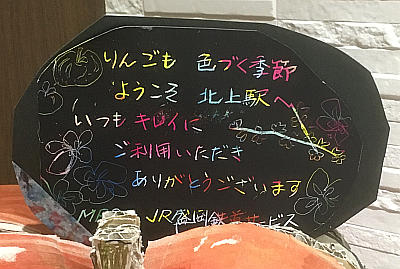 りんごも 色づく季節
ようこそ 北上駅へ
いつも キレイに
ご利用いただき
ありがとうございます
JR盛岡鉄道サービス